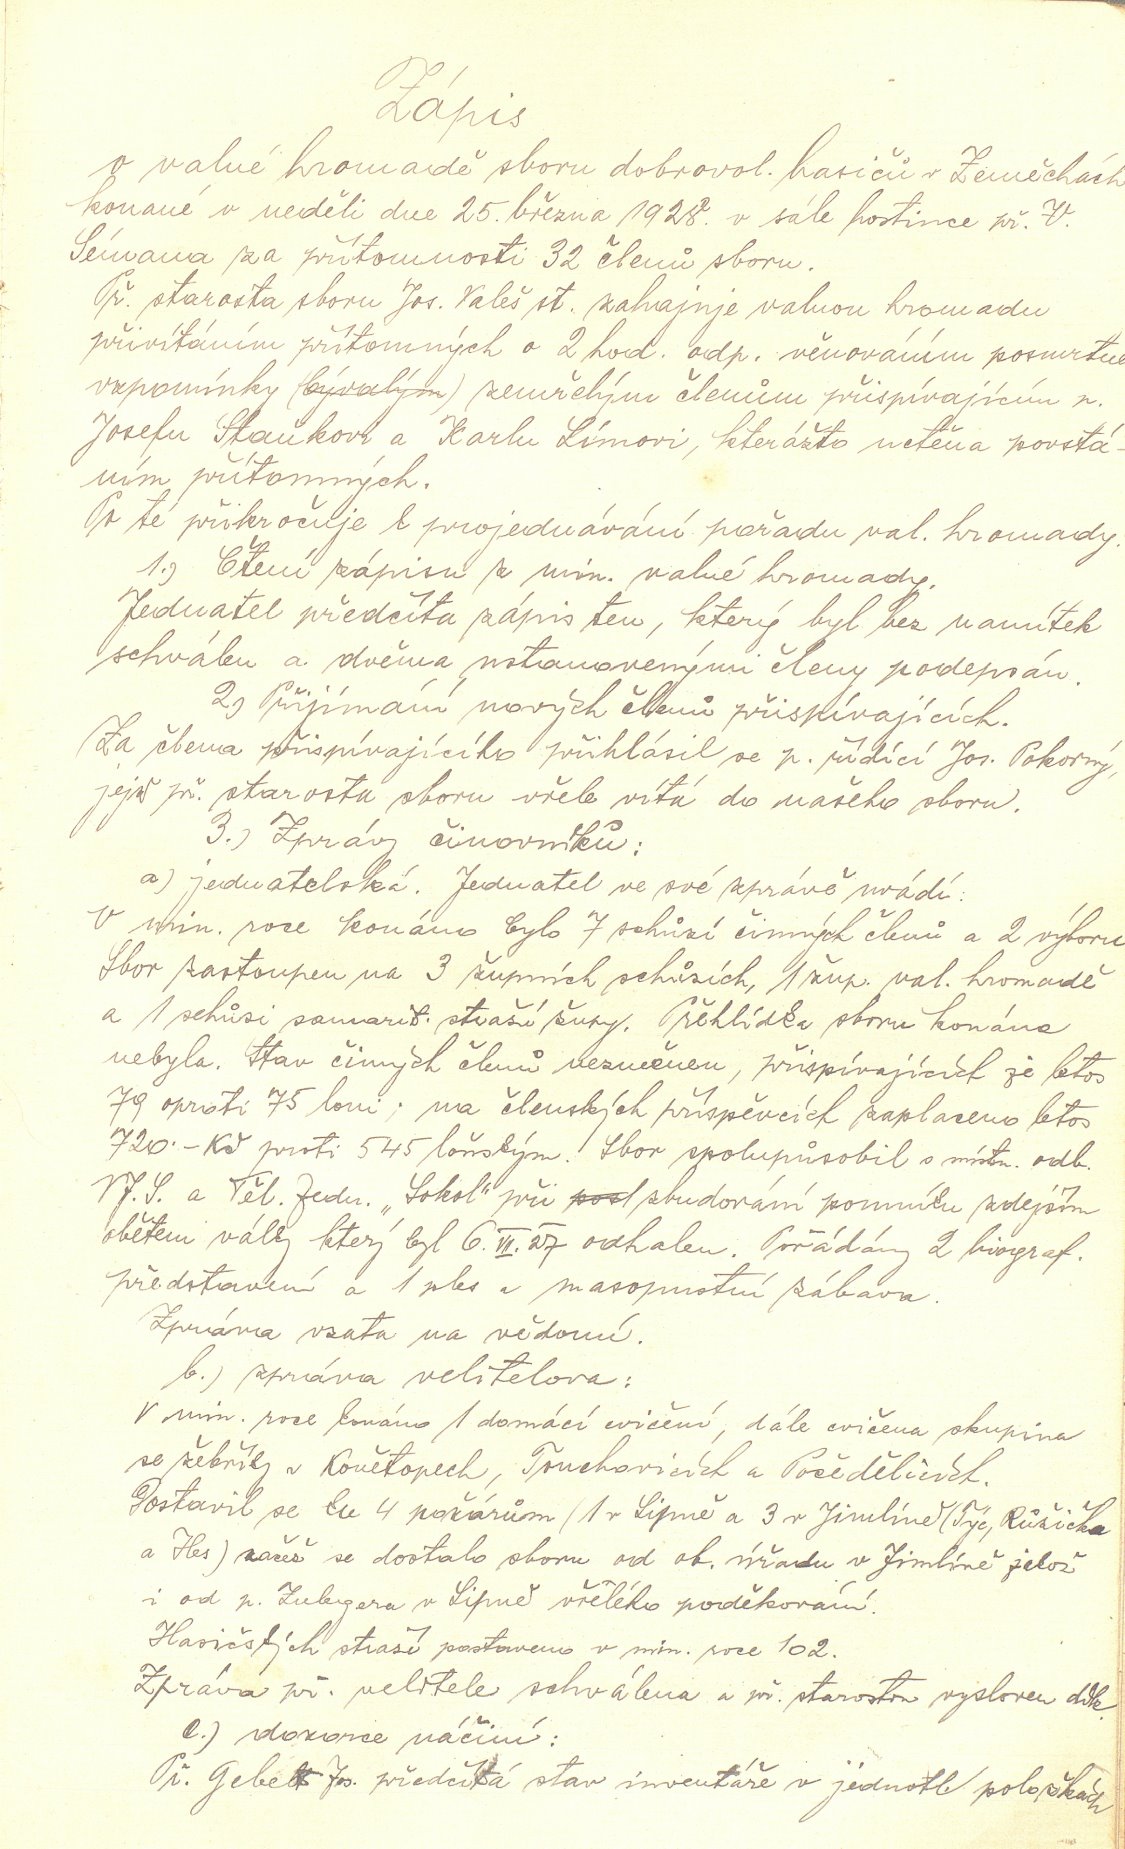 Zápis
o valné hromadě sboru dobrovol. hasičů v Zeměchách
konané v neděli dne 25. března 1928. v sále hostince př. V.
Sémana za přítomnosti 32 členů sboru.
Př. starosta sboru Jos. Valeš st. zahajuje valnou hromadu
přivítáním přítomných o 2 hod. odp. věnováním posmrtné
vzpomínky (bývalým) zemřelým členům přispívajícím p.
Josefu Staňkovi a Karlu Límovi, kterážto uctěna povstá-
ním přítomných.
Po té přikročuje k projednávání pořadu val. hromady.
1.) Čtení zápisu z min. valné hromady.
Jednatel předčítá zápis ten, který byl bez námitek
schválen a dvěma ustanovenými členy podepsán.
2) Přijímání nových členů přispívajících.
Za člena přispívajícího přihlásil se p. řídící Jos. Pokorný,
jejž př. starosta sboru vřele vítá do našeho sboru.
3.) Zprávy činovníků:
a) jednatelská. Jednatel ve své zprávě uvádí:
V min. roce konáno bylo 7 schůzí činných členů a 2 výboru
Sbor zastoupen na 3 župních schůzích, 1 žup. val. hromadě
a 1 schůzi samarit. stráží župy. Přehlídka sboru konána
nebyla. Stav činných členů nezměněn, přispívajících je letos
79 oproti 75 loni; na členských příspěvcích zaplaceno letos
720.- Kč proti 545 loňským. Sbor spolupůsobil s místn. odb.
NJ. S. a Těl. Jedn. „Sokol“ při post zbudování pomníku zdejším
obětem války který byl 6. VI. 27 odhalen. Pořádány 2 biograf.
představení a 1 ples a masopustní zábava.
Zpráva vzata na vědomí.
b.) zpráva velitelova:
V min. roce konáno 1 domácí cvičení, dále cvičena skupina
se žebříky v Konětopech, Touchovicích a Počedělicích.
Dostavil se ku 4 požárům (1 v Lipně a 3 v Jimlíně (Týc, Růžička
a Hes) začež se dostalo sboru od ob. úřadu v Jimlíně jakož
i od p. Zulegera v Lipně vřelého poděkování.
Hasičských stráží postaveno v min. roce 102.
Zpráva př. velitele schválena a př. starostou vysloven dík.
c.) dozorce náčiní:
Př. Gebelt Jos. předčítá stav inventáře v jednotl. položkách